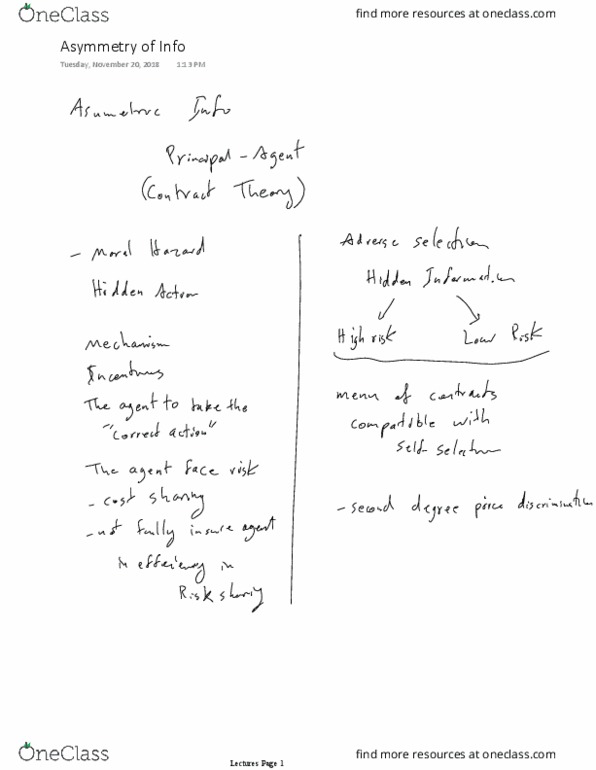 OneClass
find more resources at oneclass.com
Asymmetry of Info
Tuesday, November 20, 2018 1:13 PM
Asumetric Info
Principal - Agent
(Contract Theory)
- Moral Hazard
Hidden Action
Mechanism
Incentives
The agent to take the
"correct action"
The agent face risk
- cost sharing
- not fully insure agent
In efficiency in
Risk sharing
Adverse selection
Hidden Information
High risk
Low Risk
menu of contracts
compatible with
self-selection
- second degree price discrimination
OneClass
Lectures Page 1
find more resources at oneclass.com